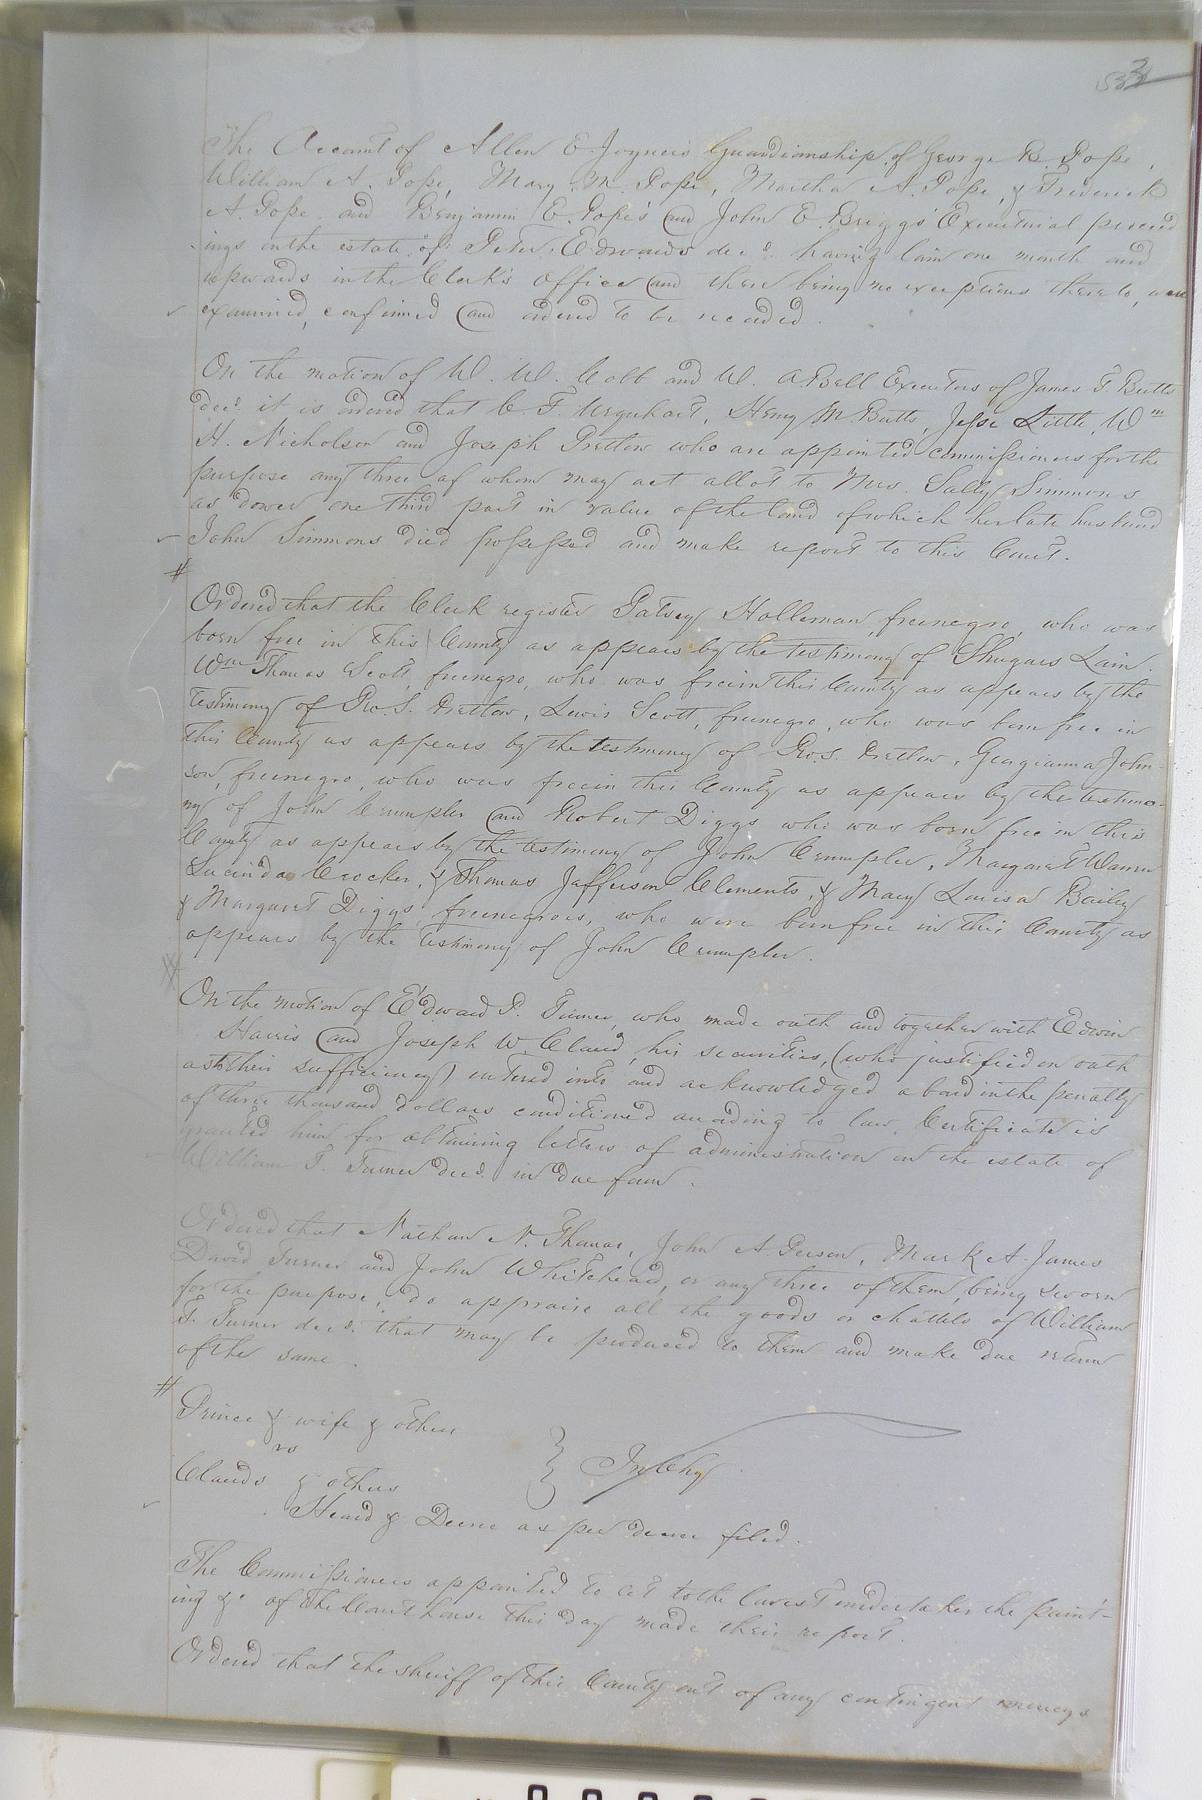 The Account of Allen E. Joyners Guardianship of George B. Pope,
William A. Pope, Mary M. Pope, Martha A. Pope, & Frederick
A. Pope and Benjamin E. Pope's and John E. Briggs Executorial proceed
ings on the estate of Peter Edwards decd. having lain one month and
upwards in the Clerk's office and there being no exceptions thereto, were
examined, confirmed and ordered to be recorded.
On the motion of W. W. Cobb and W. A Bell Executors of James T. Butts
decd. it is ordered that C. F. Urquhart, Henry M. Butts, Jesse Little, Wm
H. Nicholson and Joseph Pretlow who are appointed commissioners for the
purpose any three of whom may act allot to Mrs. Sally Simmons
as dower one third part in value of the land of which her late husband
John Simmons died possessed and make report to this Court.
#
Ordered that the Clerk register Patsey Holleman, freenegro, who was
born free in this County as appears by the testimony of Shugars Lain.
Wm Thomas Scott, freenegro, who was free in this County as appears by the
testimony of Ro. S. Pretlow, Lewis Scott, freenegro, who was born free in
this County as appears by the testimony of Ro. S. Pretlow, Georgianna John-
son, freenegro, who was free in this County as appears by the testimo-
ny of John Crumpler and Robert Diggs who was born free in this
County as appears by the testimony of John Crumpler, Margaret Warren
Lucinda Crocker, & Thomas Jefferson Clements, & Mary Louisa Bailey
& Margaret Diggs, freenegroes, who were born free in this County as
appears by the testimony of John Crumpler.
#
On the motion of Edward P. Turner, who made oath and together with Edwin
Harris and Joseph W. Claud, his securities, (who justified on oath
as to their sufficiency) entered into and acknowledged a bond in the penalty
of three thousand dollars conditioned according to law, Certificate is
granted him for obtaining letters of administration on the estate of
William T. Turner decd. in due form.
Ordered that Nathan N. Thomas, John A. Person, Mark A. James
David Turner and John Whitehead, or any three of them being sworn
for the purpose, do appraise all the goods or chattels of William
T. Turner decd. that may be produced to them and make due return
of the same.
#
Prince & wife & others
vs } In Chy
Clauds & others
Heard & Decree as per decree filed.
The Commissioners appointed to let to the lowest undertaker the paint-
ing &c of the Courthouse this day made their report.
Ordered that the sheriff of this County out of any contingent moneys